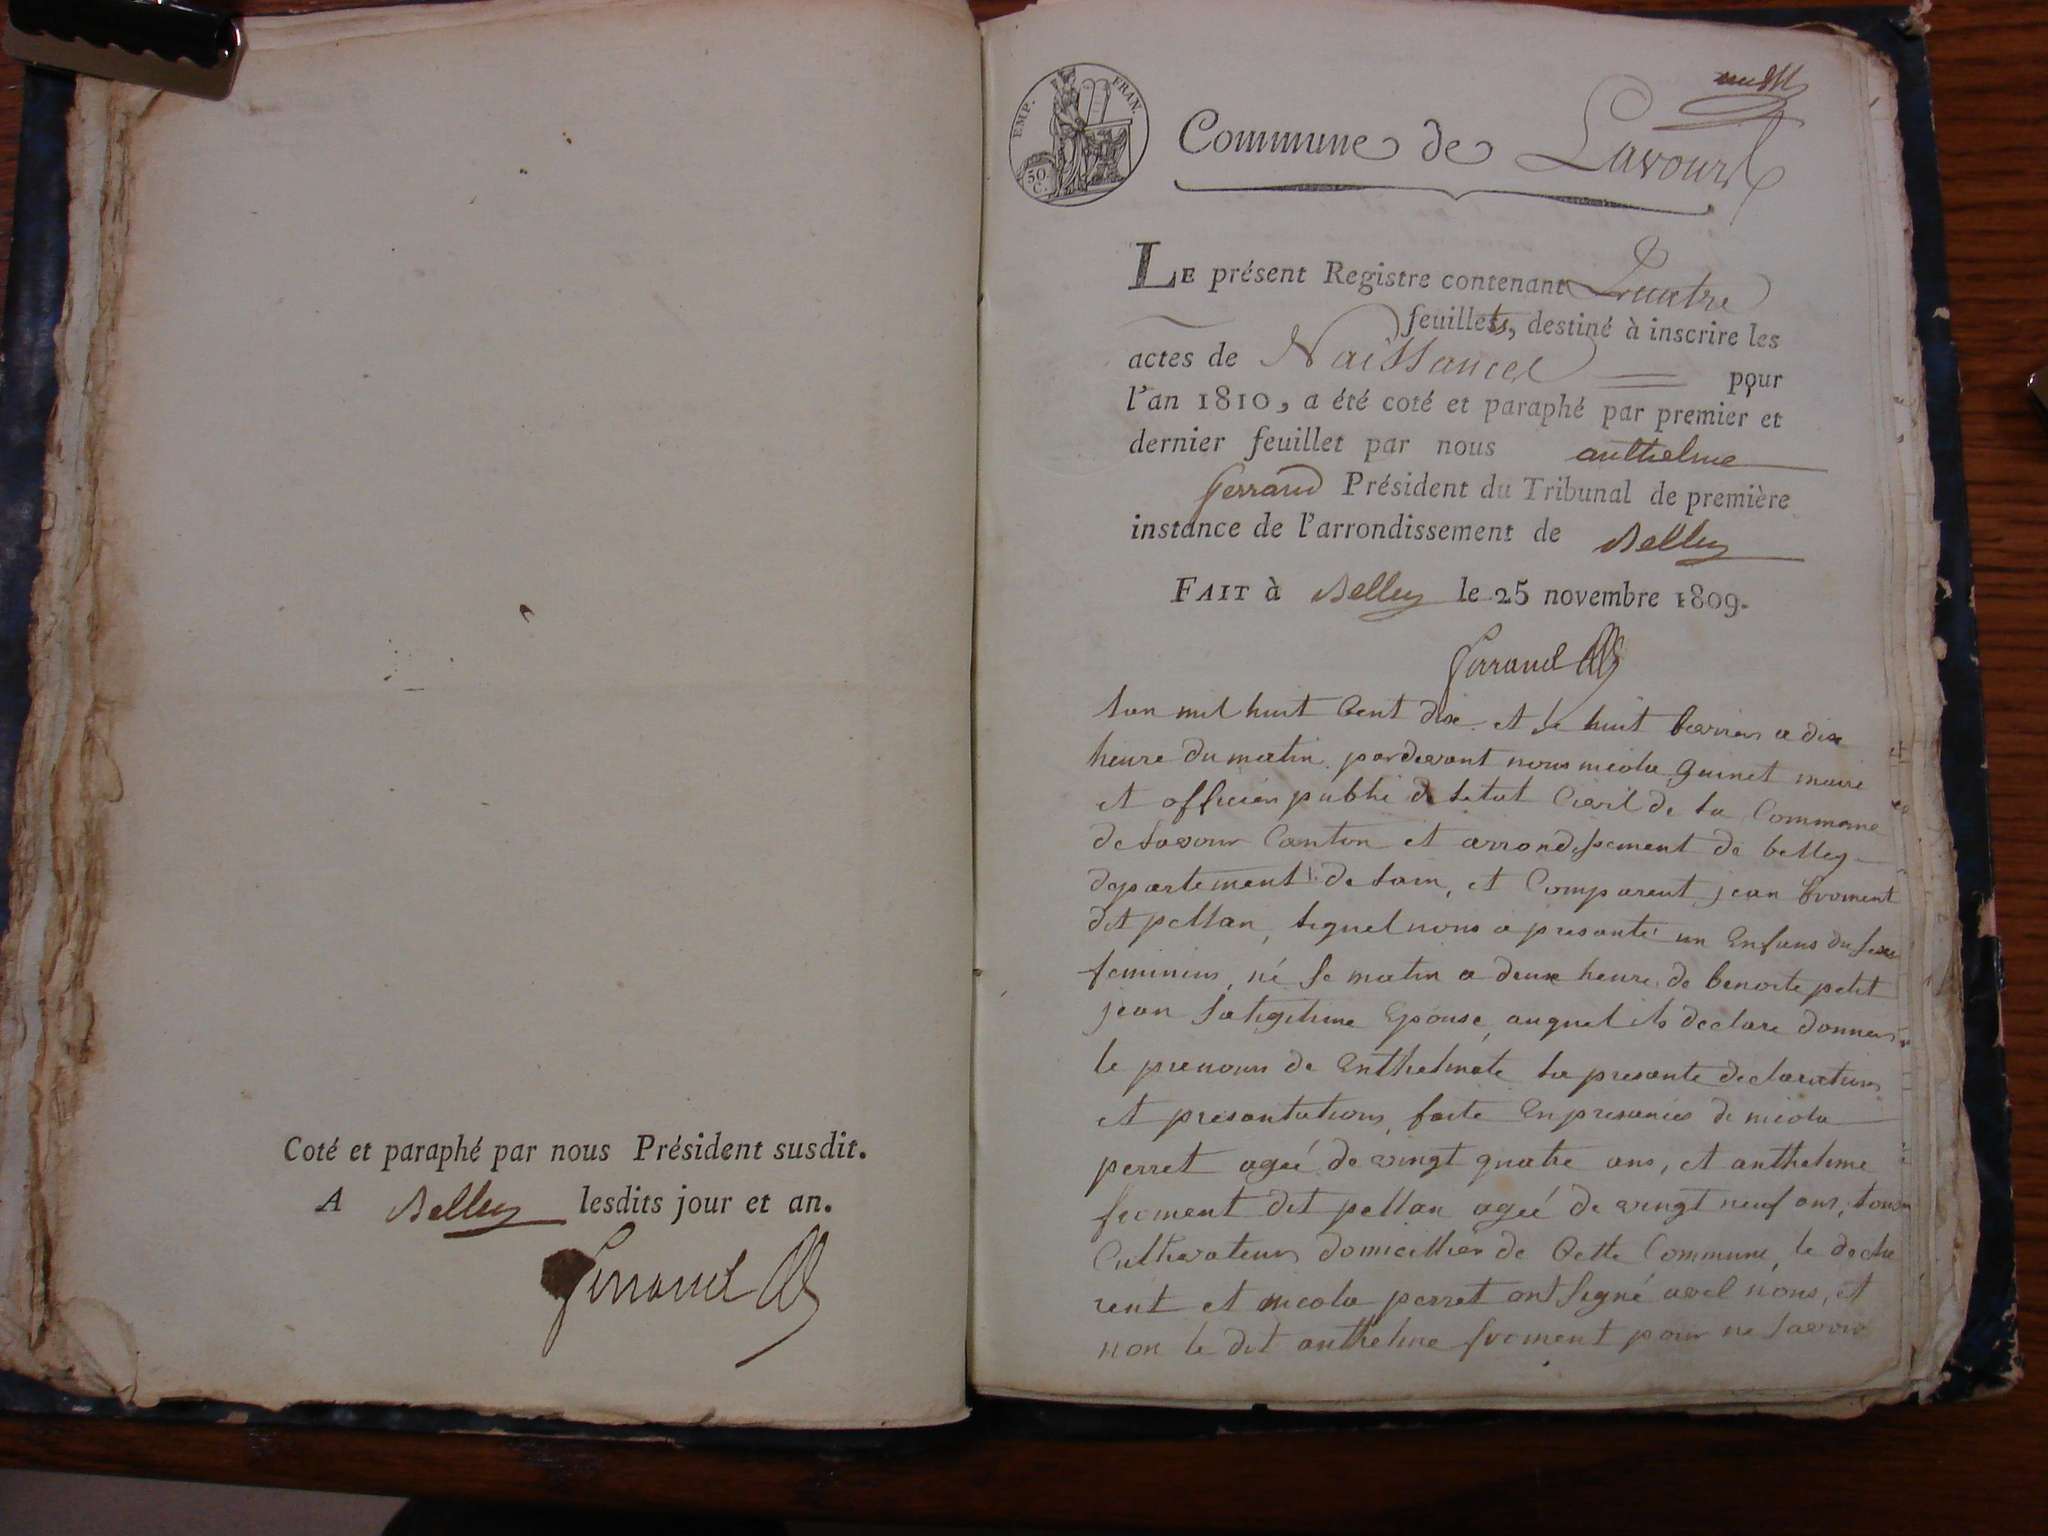 Coté et paraphé par nous Président susdit.
A Belley lesdits jour et an.
EMP. FRAN.
50 C.
Commune de Lavours
LE présent Registre contenant Quatre
feuillets, destiné à inscrire les
actes de Naissances pour
l'an 1810, a été coté et paraphé par premier et
dernier feuillet par nous anthelme
ferrand Président du Tribunal de première
instance de l'arrondissement de Belley
FAIT à Belley le 25 novembre 1809.
ferrand
lan mil huit Cent dix et le huit a dix
heure du matin pardevant nous nicola guinet maire
et officier publi de letat Civil de la Commune
de lavour Canton et arrondissement de belley
departement de lain, et Comparent jean froment
dit pellan, lequel nous a presanté un Enfans du sexe
feminins, né se matin a deux heure de benoite petit
jean sa legitime Epouse, auquel ils declare donner
le prenom de Enthelmete la presante declaration
et presantations faite En presances de nicola
perret ageé de vingt quatre ans, et anthelme
froment dit pellan ageé de vingt neuf ans, tous
Cultivateur domicillier de Cette Commune, le decla
rent et nicola perret ont signé avec nous, et
non le dit anthelme froment pour ne savoir